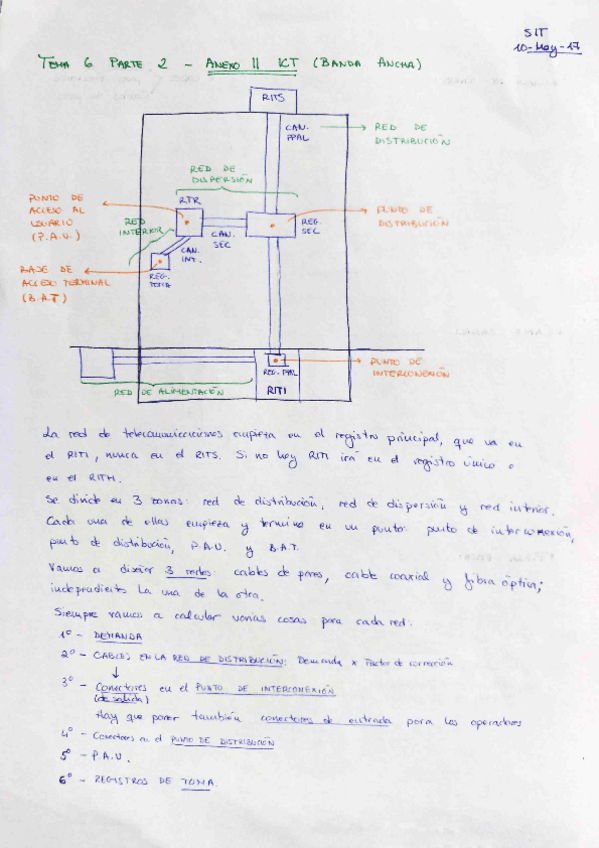 SIT
10-May-17
TEMA 6 PARTE 2 - ANEXO II ICT (BANDA ANCHA)
RITS
CAN. PPAL
RED DE
DISTRIBUCIÓN
RED DE
DISPERSIÓN
RTR
PUNTO DE
ACCESO AL
USUARIO
(P.A.U.)
RED
INTERIOR
CAN.
SEC
REG.
SEC
PUNTO DE
DISTRIBUCIÓN
CAN.
INT.
BASE DE
ACCESO TERMINAL
(B.A.T)
REG.
TOMA
PUNTO DE
INTERCONEXIÓN
REG. PPAL
RED DE ALIMENTACIÓN
RITI
La red de telecomunicaciones empieza en el registro principal, que va en
el RITI, nunca en el RITS. Si no hay RITI irá en el registro único o
en el RITM.
Se divide en 3 zonas: red de distribución, red de dispersión y red interior.
Cada una de ellas empieza y termina en un punto: punto de interconexión,
punto de distribución, P.A.U. y B.A.T.
Vamos a diseñar 3 redes: cables de pares, cable coaxial y fibra óptica;
independientes la una de la otra.
Siempre vamos a calcular varias cosas para cada red:
1º - DEMANDA
2º - CABLES EN LA RED DE DISTRIBUCIÓN: Demanda x Factor de corrección
3º - Conectores en el PUNTO DE INTERCONEXIÓN
(de salida)
Hay que poner también conectores de entrada para los operadores
4º - Conectores en el PUNTO DE DISTRIBUCIÓN
5º - P.A.U.
6º - REGISTROS DE TOMA.